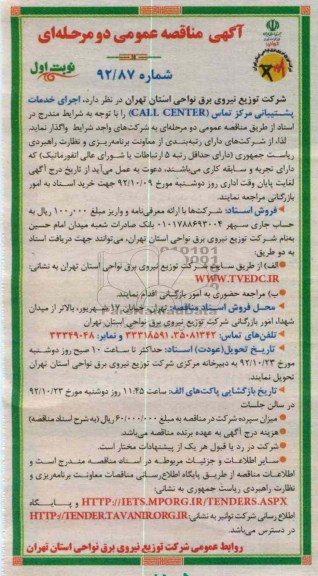 آگهی مناقصه عمومی دو مرحله‌ای
نوبت اول
شماره ۹۲/۸۷
شرکت توزیع نیروی برق نواحی استان تهران در نظر دارد، اجرای خدمات
پشتیبانی مرکز تماس (CALL CENTER) را با توجه به شرایط مندرج در
اسناد از طریق مناقصه عمومی دو مرحله‌ای به شرکت‌های واجد شرایط واگذار نماید.
لذا، از شرکت‌های دارای رتبه‌بندی از معاونت برنامه‌ریزی و نظارت راهبردی
ریاست جمهوری (دارای حداقل رتبه ۵ ارتباطات یا شورای عالی انفورماتیک) که
دارای تجربه و سابقه کاری می‌باشند، دعوت به عمل می‌آید از تاریخ درج آگهی
لغایت پایان وقت اداری روز دوشنبه مورخ ۹۲/۱۰/۰۹ جهت خرید اسناد به امور
بازرگانی مراجعه نمایند.
فروش اسناد: شرکت‌ها با ارائه معرفی‌نامه و واریز مبلغ ۱۰۰٫۰۰۰ ریال به
حساب جاری سپهر ۰۱۰۱۷۸۸۶۹۳۰۰۴ بانک صادرات شعبه میدان امام حسین
به‌نام شرکت توزیع نیروی برق نواحی استان تهران، می‌توانند جهت دریافت اسناد
به دو طریق:
الف) از طریق سایت شرکت توزیع نیروی برق نواحی استان تهران به نشانی:
WWW.TVEDC.IR
ب) مراجعه حضوری به امور بازرگانی اقدام نمایند.
محل فروش اسناد مناقصه: تهران، خیابان ۱۷ شهریور، بالاتر از میدان
شهدا، امور بازرگانی شرکت توزیع نیروی برق نواحی استان تهران
تلفن‌های تماس: ۸۱۳۴۲-۳۳۳۱۸۵۹۱،۳۵۰ و نمابر: ۳۳۳۴۹۰۴۸
تاریخ تحویل(عودت) اسناد: حداکثر تا ساعت ۱۰ صبح روز دوشنبه
مورخ ۹۲/۱۰/۲۳ به دبیرخانه مرکزی شرکت توزیع نیروی برق نواحی استان تهران
تحویل نمایند.
تاریخ بازگشایی پاکت‌های الف: ساعت ۱۱:۴۵ روز دوشنبه مورخ ۹۲/۱۰/۲۳
در سالن جلسات
میزان سپرده شرکت در مناقصه به مبلغ ۶۰/۰۰۰/۰۰۰ ریال (به شرح اسناد مناقصه)
هزینه درج آگهی به عهده برنده مناقصه می‌باشد.
شرکت در رد یا قبول هر یک از پیشنهادات مختار است.
سایر اطلاعات و جزئیات مربوطه در اسناد مناقصه مندرج است و
اطلاعات مناقصه از طریق پایگاه اطلاع‌رسانی مناقصات معاونت برنامه‌ریزی و
نظارت راهبردی ریاست جمهوری به نشانی:
HTTP://IETS.MPORG.IR/TENDERS.ASPX و پایگاه
اطلاع رسانی شرکت توانیر به نشانی: HTTP://TENDER.TAVANIR.ORG.IR
در دسترس می‌باشد.
روابط عمومی شرکت توزیع نیروی برق نواحی استان تهران